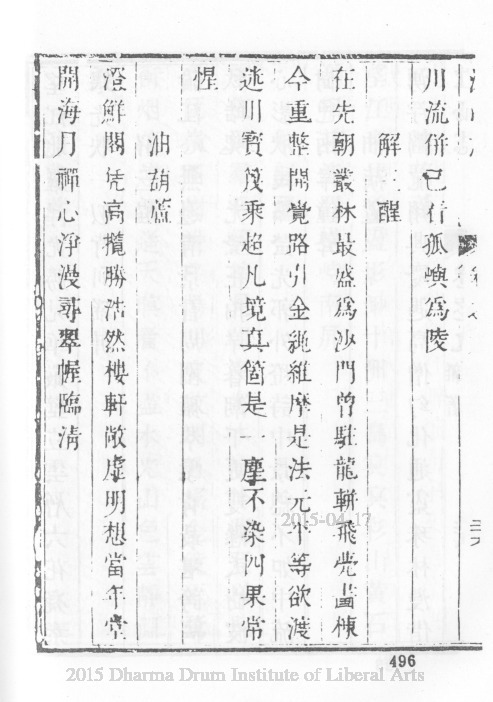 川流併已行孤嶼爲陵
解三醒
在先朝叢林最盛爲沙門曾駐龍輧飛甍畫棟
今重整開覺路引金繩維摩是法元平等欲渡
迷川寶筏乘超凡境真箇是一塵不染四果常
惺
油葫蘆
澄鮮閣凭高攬勝浩然樓軒敞虛明想當年堂
開海月禪心淨漫尋翠幄臨清
2015-04-17
496
2015 Dharma Drum Institute of Liberal Arts